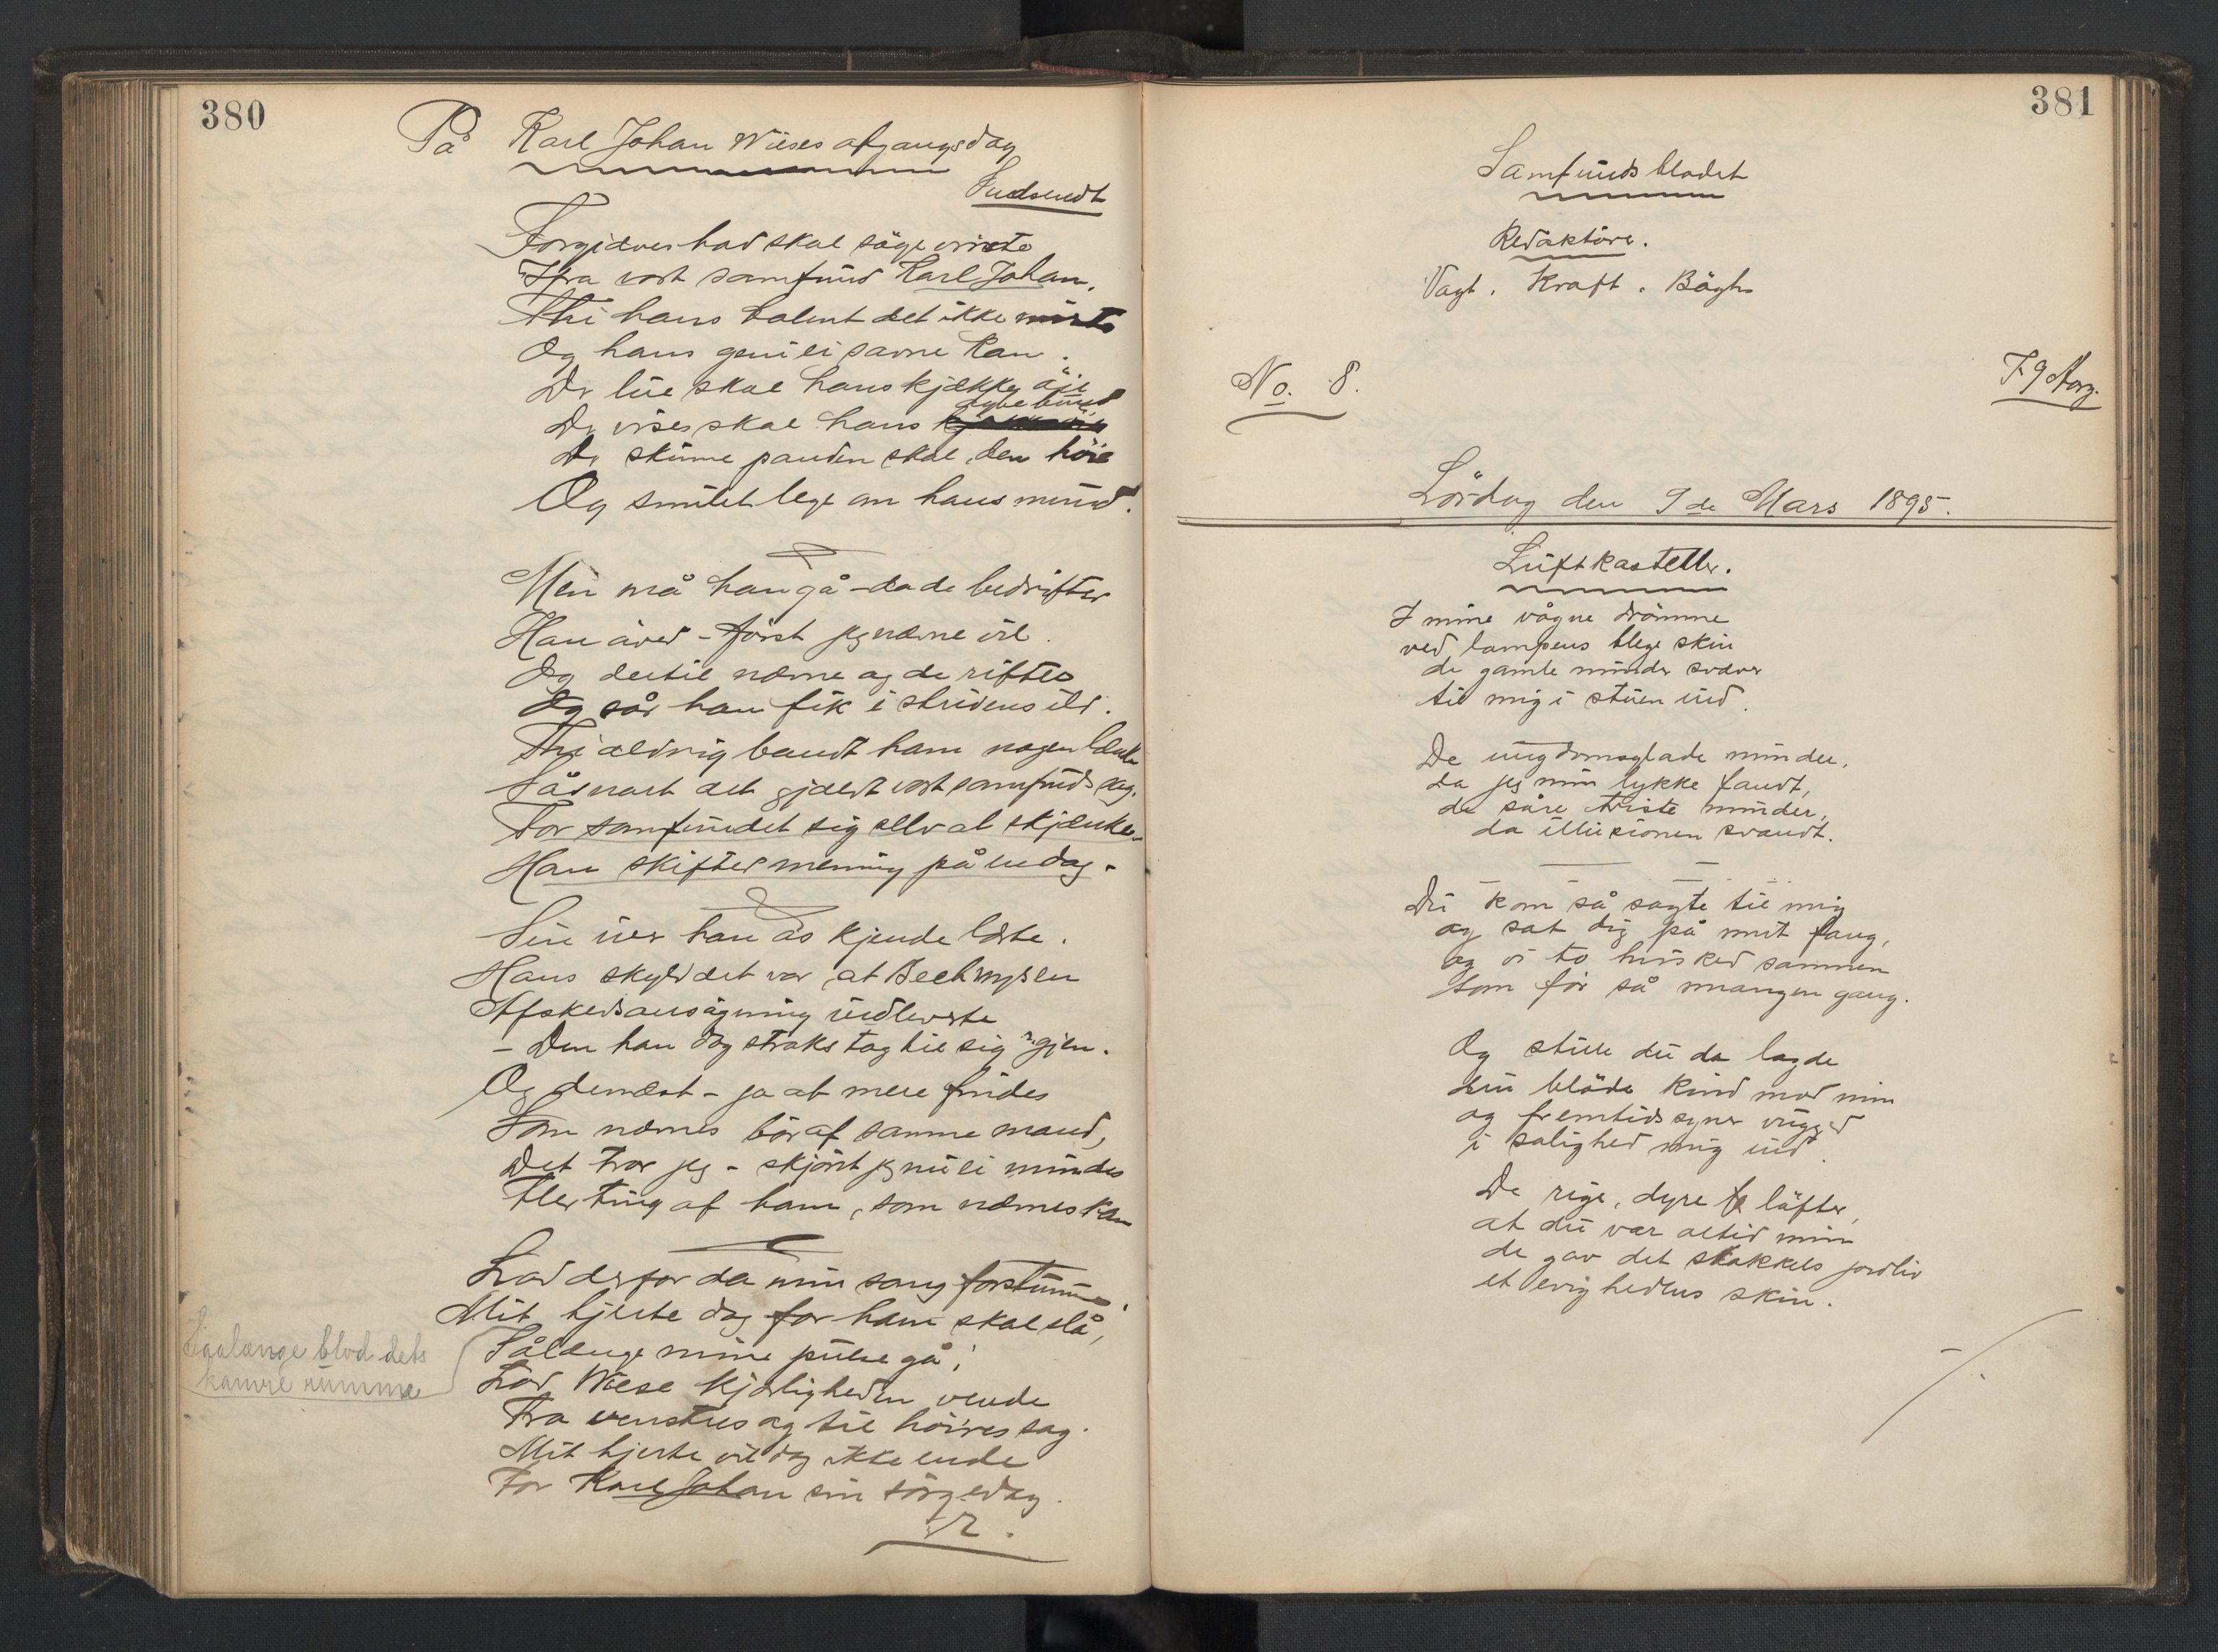 380
På Karl Johan Wieses afgangsdag
Indsendt
Forgjæves had skal søge
Ifra vort samfund Karl Johan.
Thi hans talent det ikke miste
Og hans geni ei savne kan.
Der lue skal hans kjække øje
dybe bund
Der vises skal hans
Der skinne panden skal, den høie
Og smilet lege om hans mund.
Men må han gå – da de bedrifter
Han øved – først jeg nævne vil.
Og dertil nævne og de rifter
Og sår han fik i stridens ild.
Thi aldrig bandt ham nogen lænke
Såsnart det gjældt vort samfunds sag.
For samfundet sig selv at skjænke
Han skifter mening på en dag.
Sin iver han os kjende lærte.
Hans skyld det var, at
Afskedsansøgning indleverte
– Den han dog straks tog til sig igjen.
Og dernæst – ja at mere findes
Som nævnes bør af samme mand,
Det tror jeg – skjønt jeg nu ei mindes
Fler ting af ham, som nævnes kan
Lad derfor da min sang forstumme,
Mit hjerte dog for ham skal slå,
Ligalænge blod dets
kamre rumme
Sålænge mine pulse gå;
Lad Wiese kjærligheden vende
Fra venstres og til høires sag.
Mit hjerte vil dog ikke ende
For Karl Johan sin sørgedag.
R.
381
Samfundsbladet
Redaktører.
Vogt. Kraft. Bøgh
No. 8.
Lørdag den 9de Mars 1895.
Luftkasteller.
I mine vågne drømme
ved lampens blege skin
de gamle minder svæver
til mig i stuen ind.
De ungdomsglade minder,
da jeg min lykke fandt,
de såre triste minder,
da illusionen svandt.
Du kom så sagte til mig
og sat dig på mit fang,
og vi to hvisked sammen
som før så mangen gang.
Og stille du da lagde
din bløde kind mod min
og fremtidssyner vugged
i salighed mig ind.
De rige, dyre løfter,
at du var altid min
de gav det stakkels jordliv
et evighedens skin.